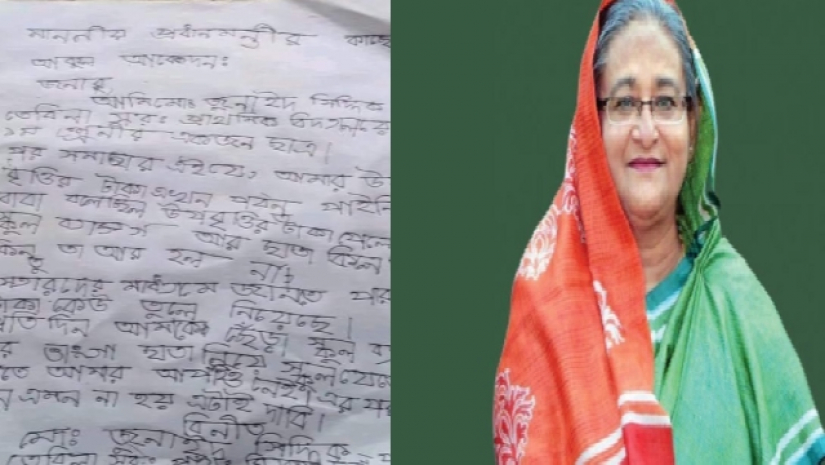 মাননীয় প্রধানমন্ত্রীর কাছে
আকুল আবেদনঃ
জনাব,
আমি মোঃ জুনাইদ সিদ্দিক
তেবিলা সরঃ প্রাথমিক বিদ্যালয়ের
শ্রেনীর একজন ছাত্র।
পর সমাচার এইযে, আমার উ
বৃত্তির টাকা এখন পর্যন্ত পাইনি
বাবা বলেছিল উপবৃত্তির টাকা পেলে
স্কুল ব্যাগ আর ছাতা কিনে
কিন্তু তা আর হল না;
স্যারদের মাধ্যমে জানতে পার
টাকা কেউ তুলে নিয়েছে।
প্রতি দিন আমাকে ছেঁড়া স্কুল ব্যা
র ভাংগা ছাতা নিয়ে স্কুলে যেতে
তে আমার আপত্তি নেই। এর পর
ন এমন না হয় এটাই দাবি।
বিনীত
মোঃ জুনাইদ সিদ্দিক
তেবিলা সরঃ